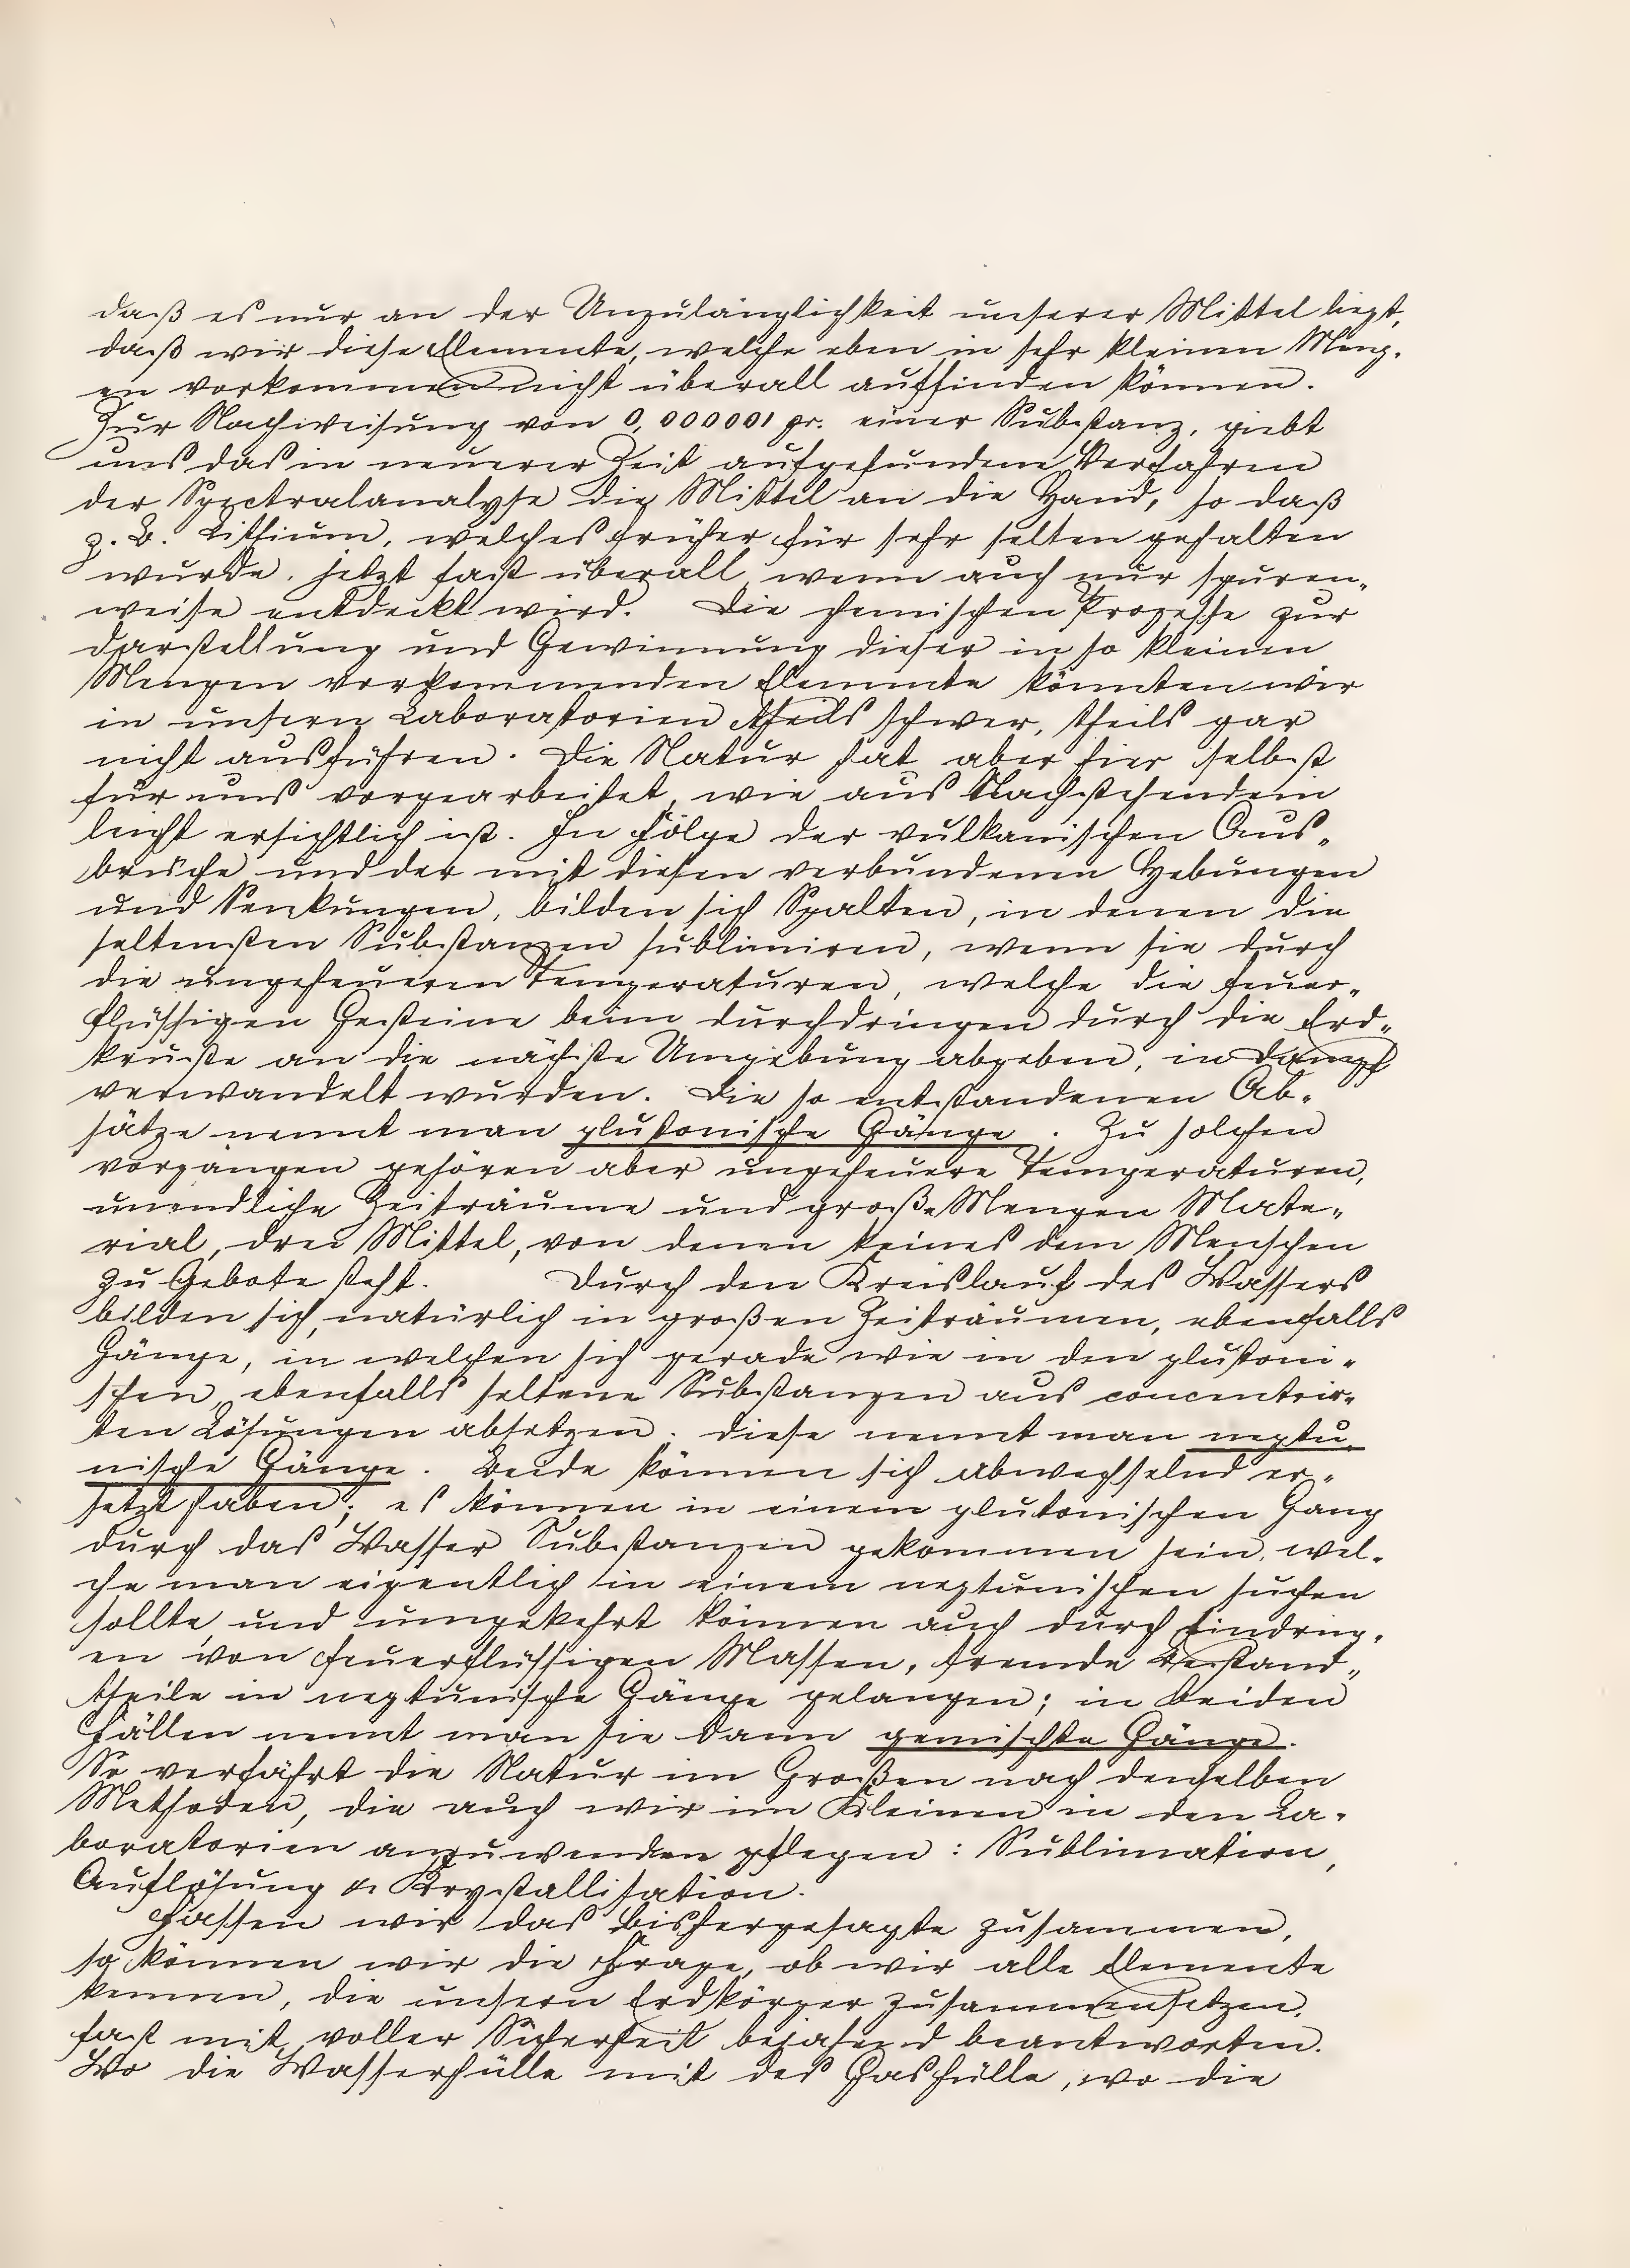 daß es nur an der Unzulänglichkeit unserer Mittel liegt,
daß wir diese Elemente, welche eben in sehr kleinen Meng-
en vorkommen nicht überall auffinden können.
Zur Nachweisung von 0,000001 gr. einer Substanz, giebt
uns das in neuerer Zeit aufgefundene Verfahren
der Spectralanalyse die Mittel an die Hand, so daß
z. B. Lithium, welches früher für sehr selten gehalten
wurde, jetzt fast überall, wenn auch nur spuren-
weise entdeckt wird. Die chemischen Prozesse zur
Darstellung und Gewinnung dieser in so kleinen
Mengen vorkommenden Elemente könnten wir
in unsern Laboratorien theils schwer, theils gar
nicht ausführen. Die Natur hat aber hier selbst
für uns vorgearbeitet, wie aus Nachstehendem
leicht ersichtlich ist. In Folge der vulkanischen Aus-
brüche und der mit diesen verbundenen Hebungen
und Senkungen, bilden sich Spalten, in denen die
seltensten Substanzen sublimiren, wenn sie durch
die ungeheueren Temperaturen, welche die feuer-
flüssigen Gesteine beim Durchdringen durch die Erd-
kruste an die nächste Umgebung abgeben, in Dampf
verwandelt wurden. Die so entstandenen Ab-
sätze nennt man plutonische Gänge. Zu solchen
Vorgängen gehören aber ungeheuere Temperaturen,
unendliche Zeiträume und große Mengen Mate-
rial, drei Mittel, von denen keines dem Menschen
zu Gebote steht. Durch den Kreislauf des Wassers
bilden sich, natürlich in großen Zeiträumen, ebenfalls
Gänge, in welchen sich gerade wie in den plutoni-
schen, ebenfalls seltene Substanzen aus concentrir-
ten Lösungen absetzen. Diese nennt man neptu-
nische Gänge. Beide können sich abwechselnd er-
setzt haben; es können in einem plutonischen Gang
durch das Wasser Substanzen gekommen sein, wel-
che man eigentlich in einem neptunischen suchen
sollte, und umgekehrt können auch durch Eindring-
en von feuerflüssigen Massen, fremde Bestand-
theile in neptunische Gänge gelangen; in beiden
Fällen nennt man sie dann gemischte Gänge.
So verfährt die Natur im Großen nach denselben
Methoden, die auch wir im Kleinen in den La-
boratorien anzuwenden pflegen: Sublimation,
Auflösung & Krystallisation.
Fassen wir das bishergesagte zusammen,
so können wir die Frage, ob wir alle Elemente
kennen, die unsern Erdkörper zusammensetzen,
fast mit voller Sicherheit bejahend beantworten.
Wo die Wasserhülle mit der Gashülle, wo die